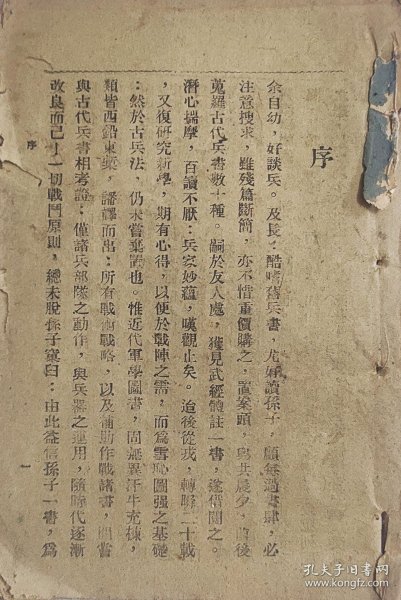 序
余自幼，好談兵。及長；酷嗜舊兵書，尤好讀孫子，願每過書肆，必
注意搜求，雖殘篇斷簡，亦不惜重價購之，置案頭，與共晨夕，前後
蒐羅古代兵書數十種。嗣於友人處，獲見武經體註一書，遂借閱之。
潛心揣摩，百讀不厭：兵家妙蘊，嘆觀止矣。迨後從戎，轉瞬二十載
，又復研究新學，期有心得，以便於戰陣之需，而爲雪恥圖强之基礎
：然於古兵法，仍未嘗棄置也。惟近代軍學圖書，固無異汗牛充棟，
類皆西鉛東槧，譯而出：所有戰術戰略，以及補助作戰諸書，嘗
與古代兵書相考證：僅諸兵部隊之動作，與兵器之運用，隨時代逐漸
改良而已！一切戰鬥原則，總未脫孫子窠臼：由此益信孫子一書，爲
序
一
孔夫子旧书网
www.kongfz.com